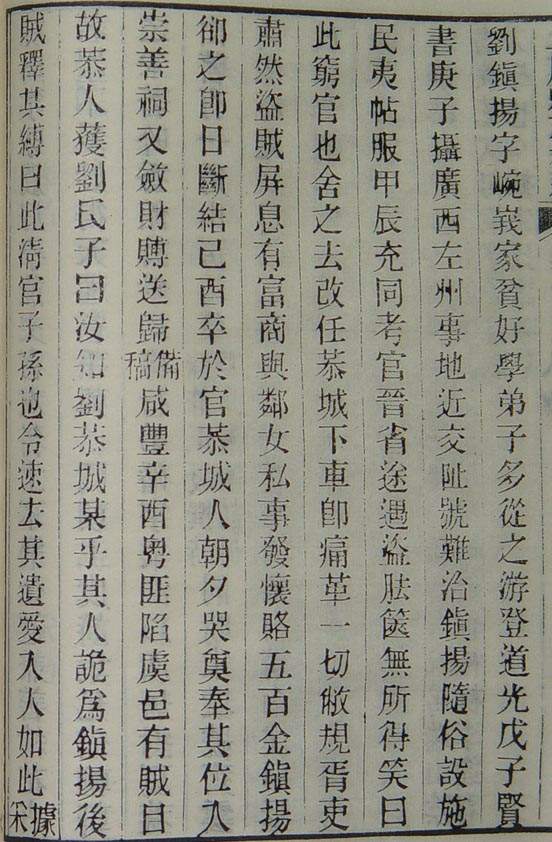 劉鎭揚字崦峩家貧好學弟子多從之游登道光戊子賢
書庚子攝廣西左州事地近交阯號難治鎭揚隨俗設施
民夷帖服甲辰充同考官晉省途遇盜胠篋無所得笑曰
此窮官也舍之去改任恭城下車卽痛革一切敝規胥吏
肅然盜賊屛息有富商與鄰女私事發懷賂五百金鎭揚
卻之卽日斷結己酉卒於官恭城人朝夕哭奠奉其位入
崇善祠又斂財賻送歸備稿咸豐辛酉粵匪陷虞邑有賊曰
故恭人獲劉氏子曰汝知劉恭城某乎其人詭爲鎭揚後
賊釋其縛曰此淸官子孫也令速去其遺愛入人如此據采